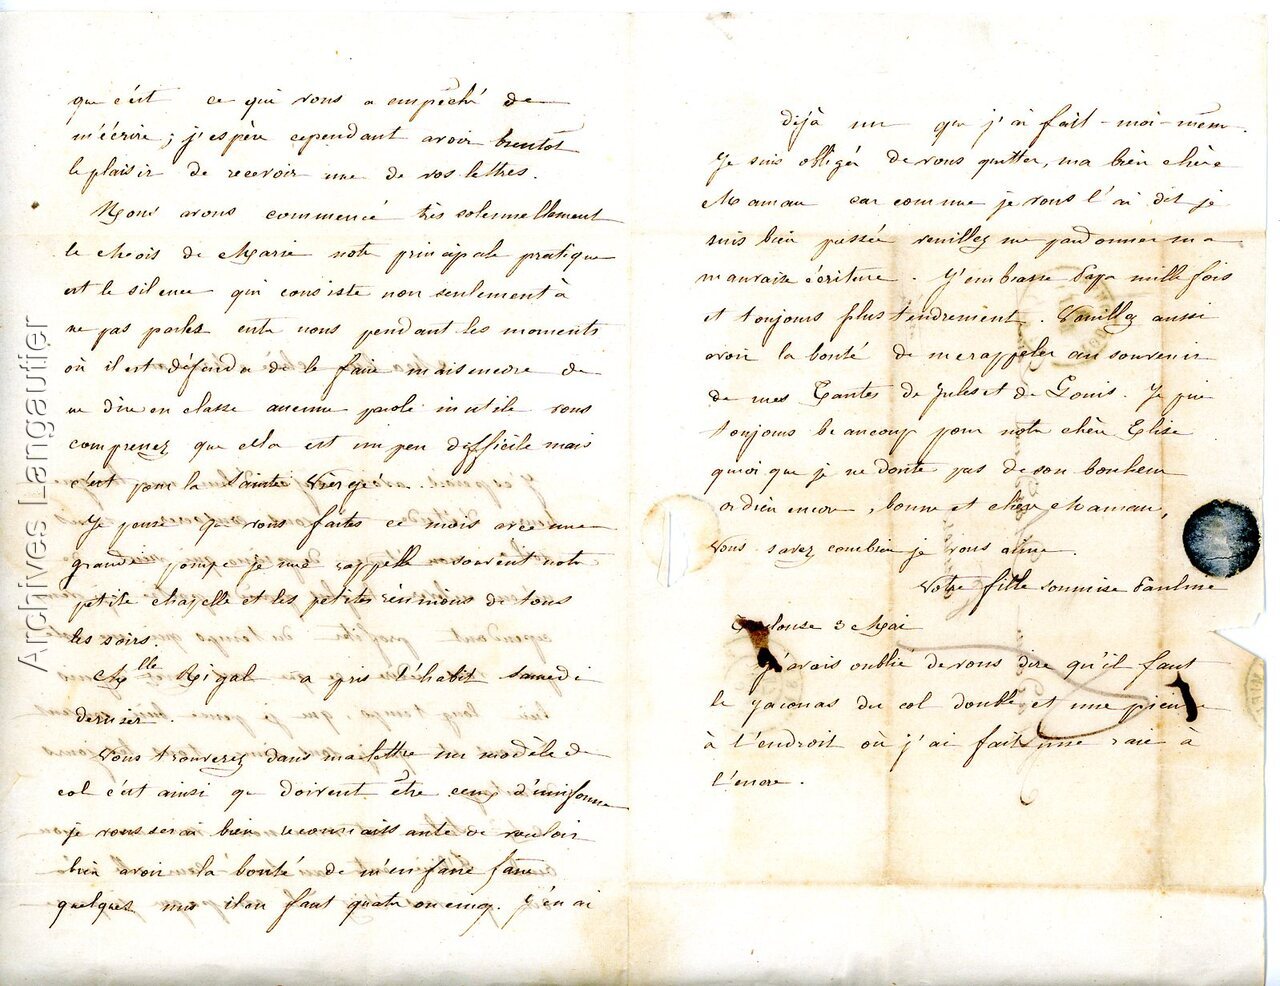 que c'est ce qui vous a empêché de
m'écrire ; j'espère cependant avoir bientôt
le plaisir de recevoir une de vos lettres.
Nous avons commencé très solennellement
le Mois de Marie notre principale pratique
est le silence qui consiste non seulement à
ne pas parler entre nous pendant les moments
où il est défendu de le faire mais encore de
ne dire en classe aucune parole inutile vous
comprenez que cela est un peu difficile mais
c'est pour la Sainte Vierge.
Je pense que vous faites ce mois avec une
grande pompe je me rappelle souvent notre
petite chapelle et les petites réunions de tous
les soirs.
Mlle Rigal a pris l'habit samedi
dernier.
Vous trouverez dans ma lettre un modèle de
col c'est ainsi que doivent être ceux d'uniforme
je vous serai bien reconnaissante de vouloir
bien avoir la bonté de m'en faire faire
quelques uns il en faut quatre ou cinq. J'en ai
déjà un que j'ai fait-moi-même.
Je suis obligée de vous quitter, ma bien chère
Maman car comme je vous l'ai dit je
suis bien pressée veuillez me pardonner ma
mauvaise écriture. J'embrasse Papa mille fois
et toujours plus tendrement. Veuillez aussi
avoir la bonté de me rappeler au souvenir
de mes Tantes de Jules et de Louis. Je prie
toujours beaucoup pour notre chère Elise
quoique je ne doute pas de son bonheur
adieu encore, bonne et chère Maman,
vous savez combien je vous aime.
Votre fille soumise Pauline
Toulouse 3 Mai
J'avais oublié de vous dire qu'il faut
le jaconas du col double et une
à l'endroit où j'ai fait une raie à
l'encre.
Archives Langautier